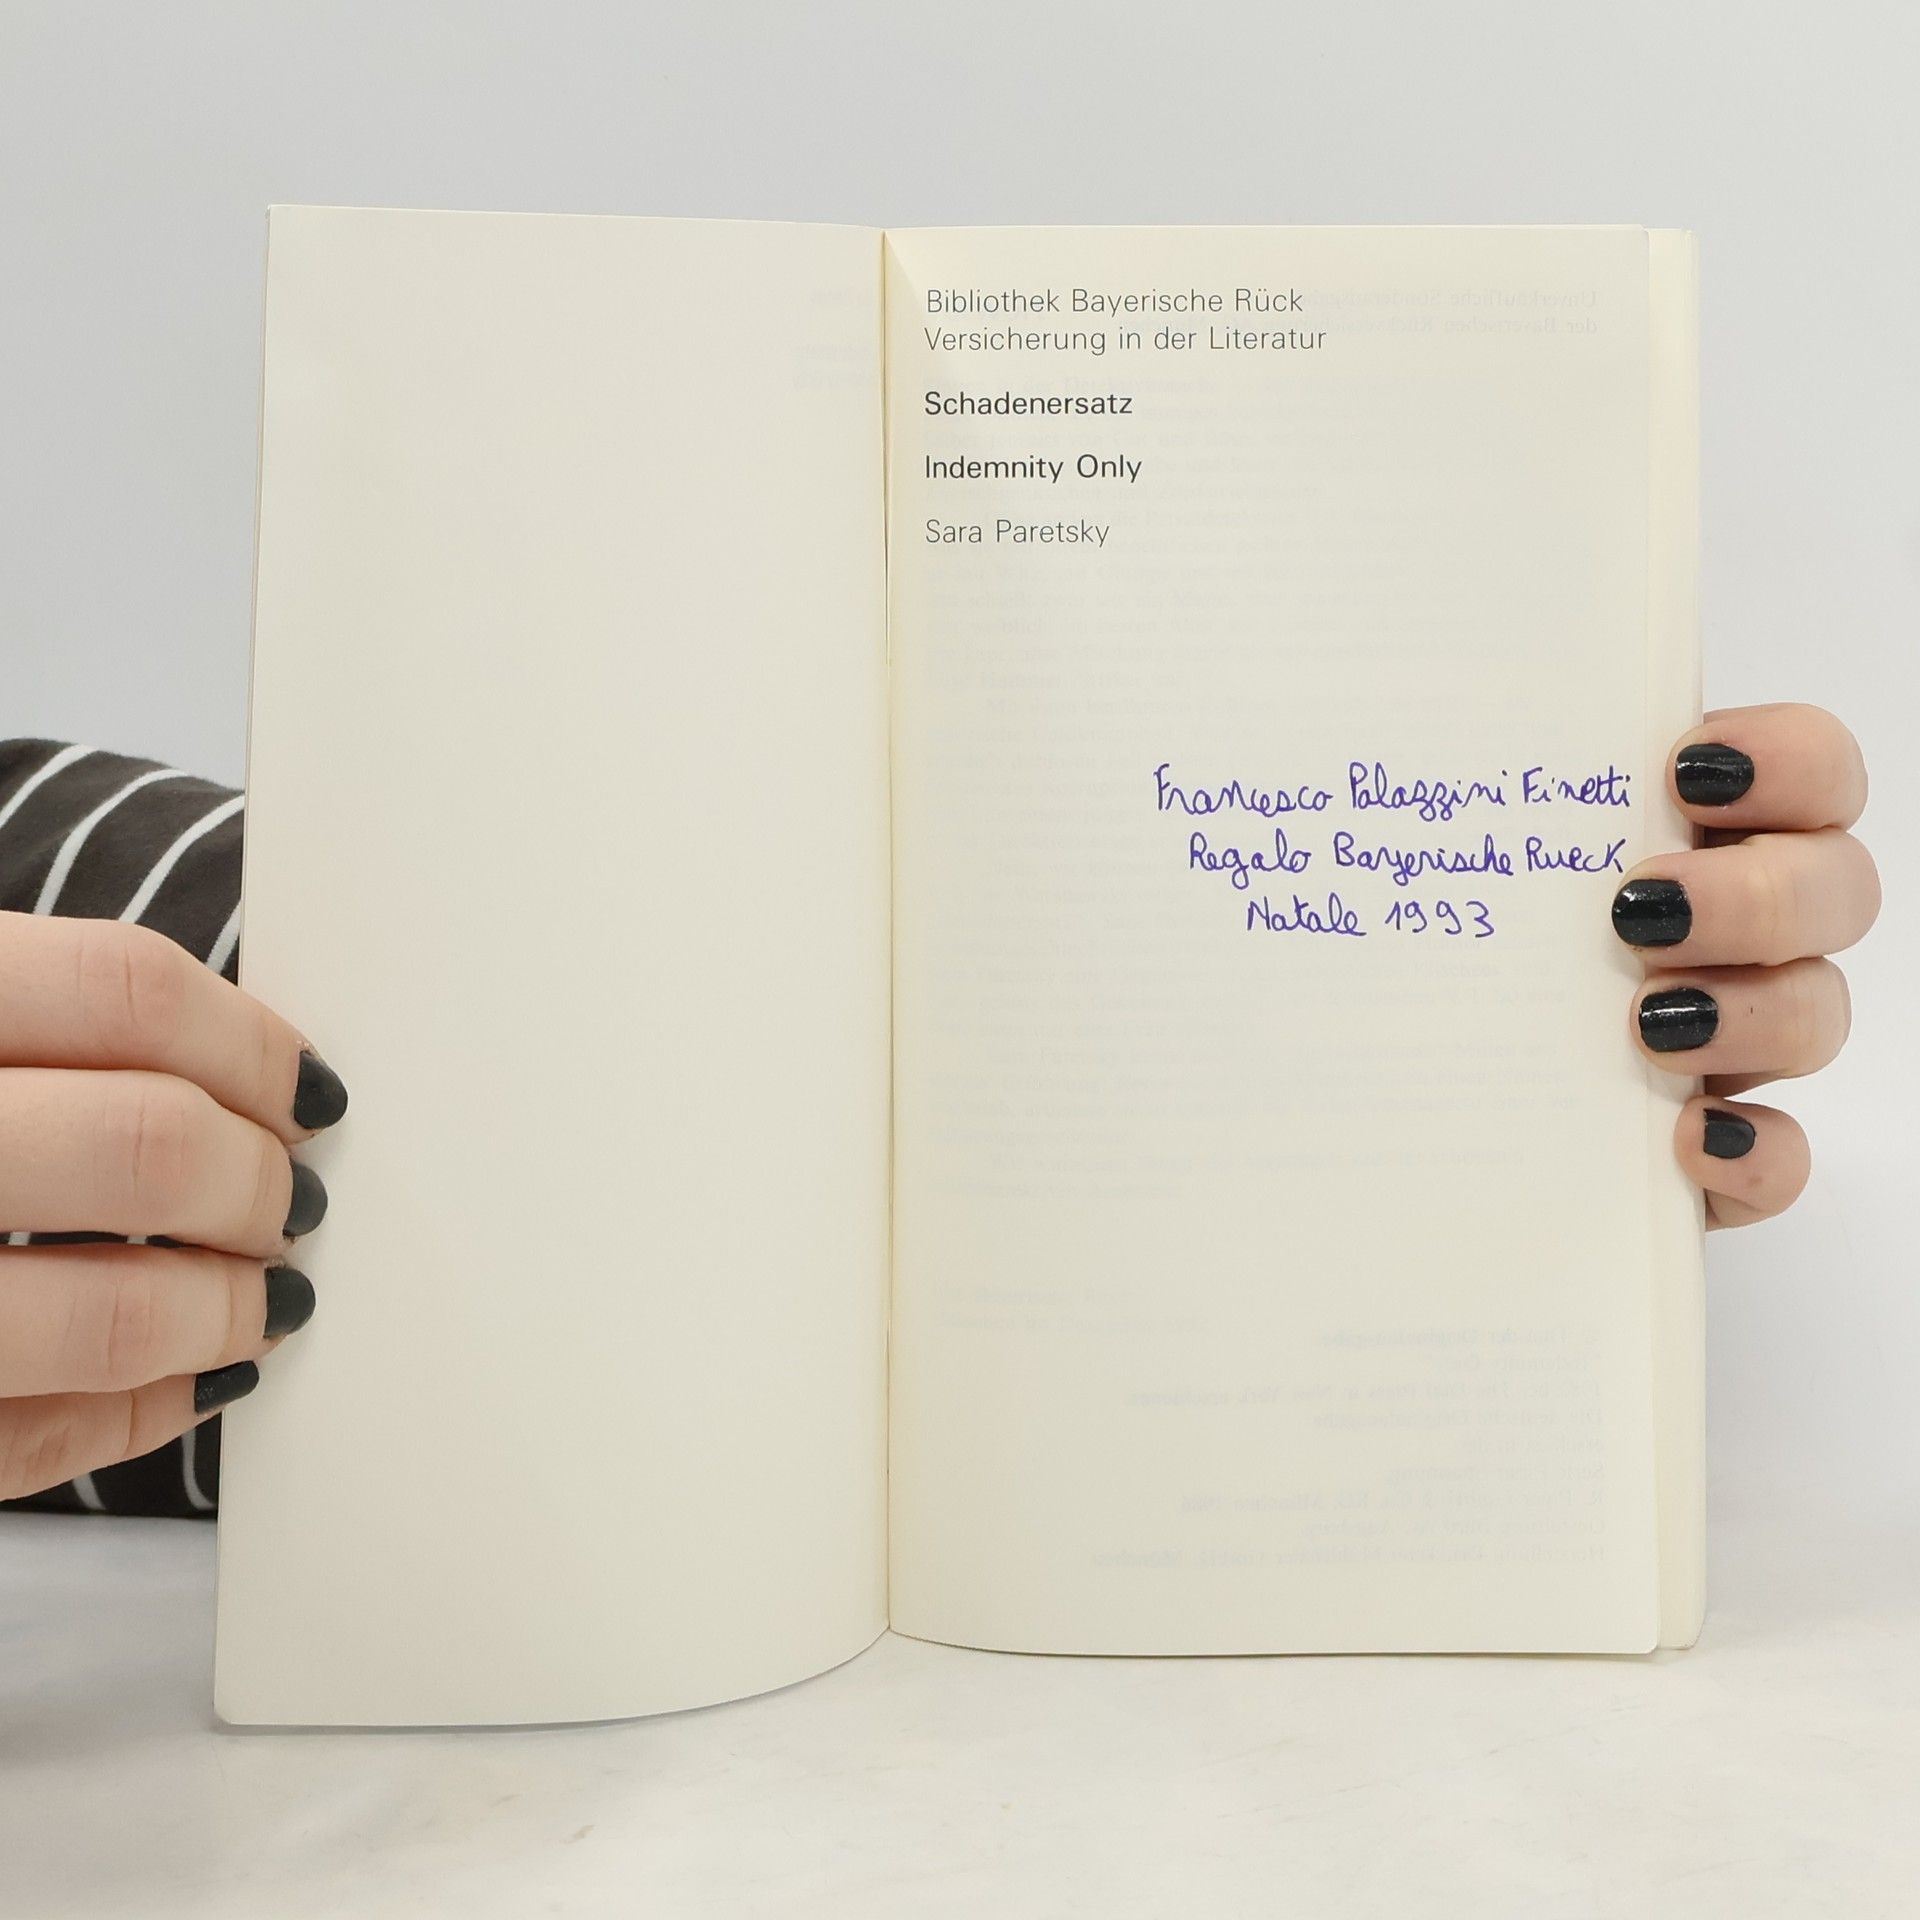 Bibliothek Bayerische Rück
Versicherung in der Literatur
Schadenersatz
Indemnity Only
Sara Paretsky
Francesco Palazzini Finetti
Regalo Bayerische Rueck
Natale 1993